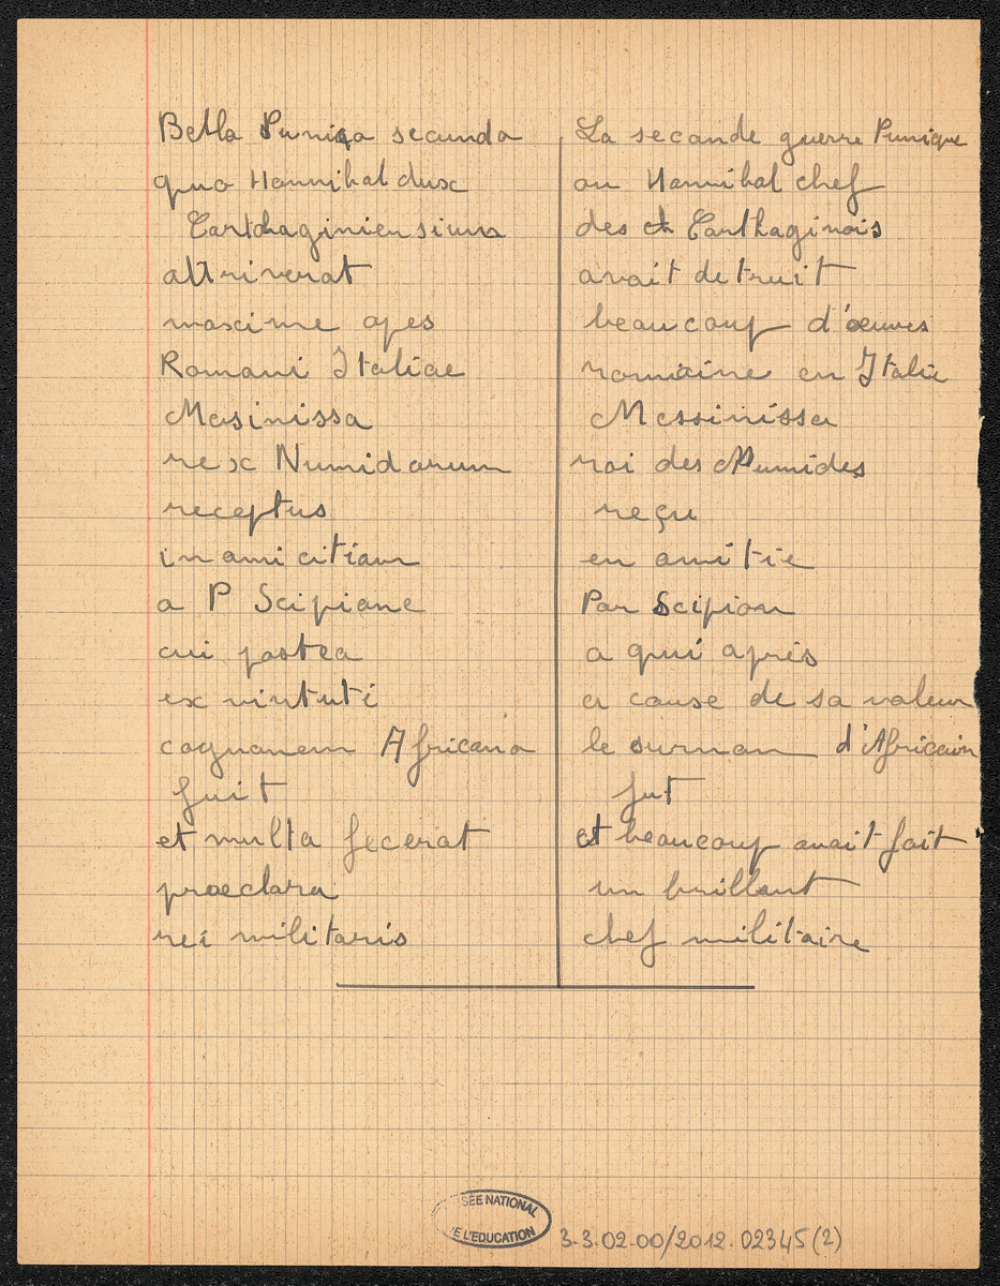 Bello Punica secundo La seconde guerre Punique
quo Hannibal dux ou Hannibal chef
Carthaginiensium des Carthaginois
attriverat avait detruit
maxime opes beaucoup d'œuvres
Romani Italiae romaine en Italie
Masinissa Messinissa
rex Numidarum roi des Numides
receptus reçu
in amicitiam en amitie
a P Scipione Par Scipion
cui postea a qui après
ex virtuti a cause de sa valeur
cognomen Africano le surnom d'Africain
fuit fut
et multa fecerat et beaucoup avait fait
praeclara un brillant
rei militaris chef militaire
SÉE NATIONAL
E L'EDUCATION
3.3.02.00/2012.02345(2)